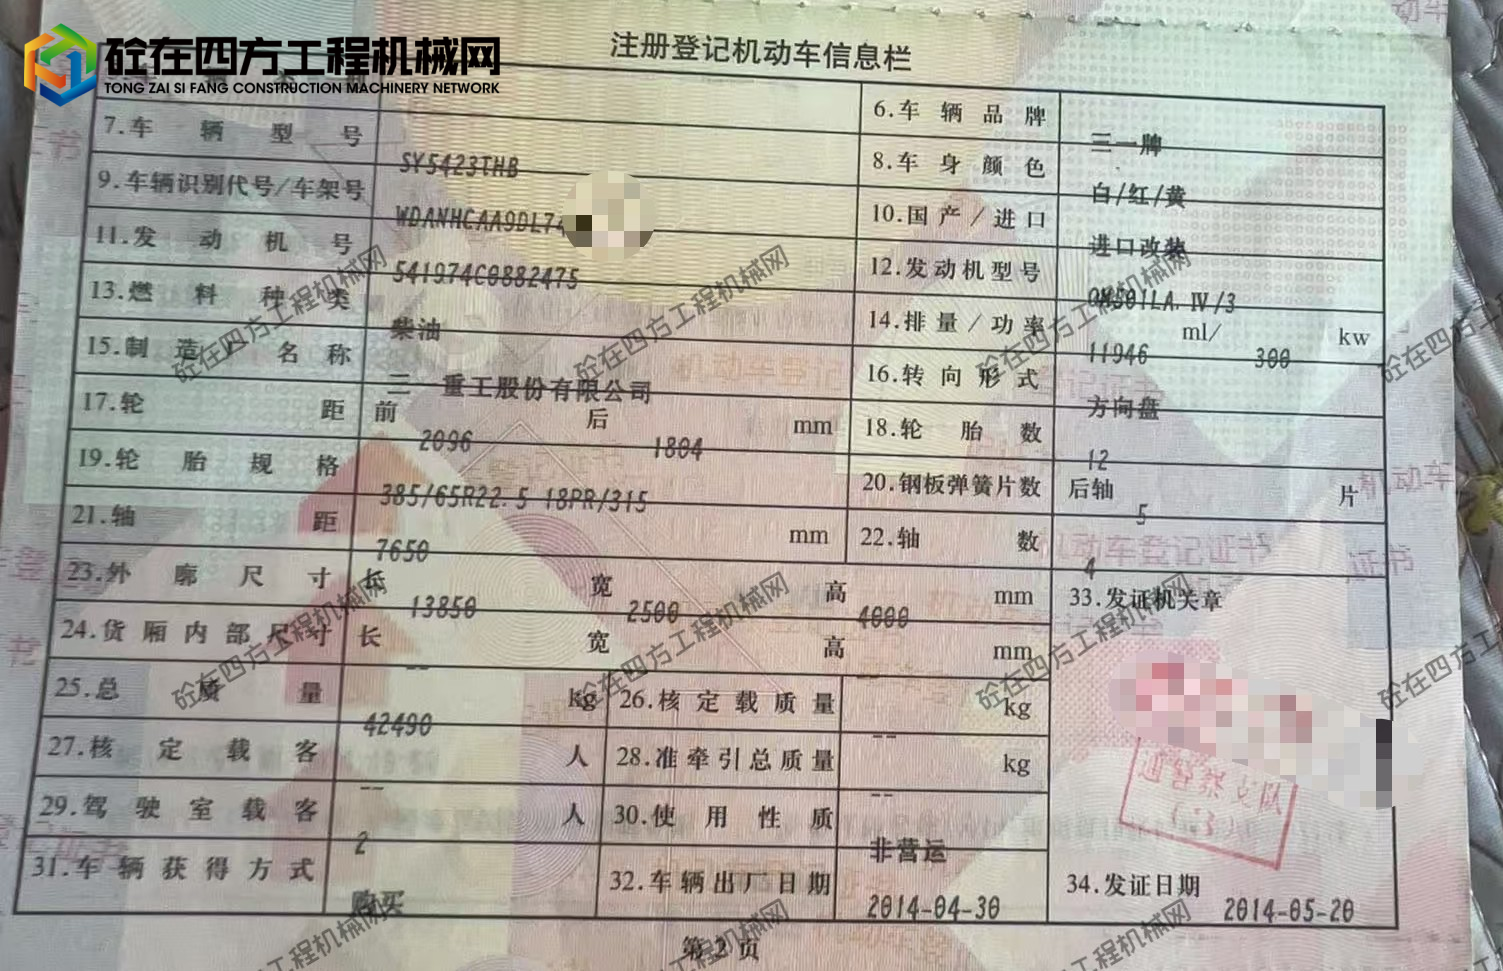 砼在四方工程机械网
TONG ZAI SI FANG CONSTRUCTION MACHINERY NETWORK
注册登记机动车信息栏
6.车辆品牌 三一牌
7.车辆型号 SY5423THB 8.车身颜色 白/红/黄
9.车辆识别代号/车架号 WDANHCAA9DL74 10.国产/进口 进口改装
11.发动机号 541974C0882475 12.发动机型号 OM501LA.Ⅳ/3
13.燃料种类 柴油 14.排量/功率 11946 ml/ 300 kw
15.制造厂名称 三一重工股份有限公司 16.转向形式 方向盘
17.轮距 前 2096 后 1804 mm 18.轮胎数 12
19.轮胎规格 385/65R22.5 18PR/315 20.钢板弹簧片数 后轴 5 片
21.轴距 7650 mm 22.轴数 4
23.外廓尺寸 长 13850 宽 2500 高 4000 mm 33.发证机关章
24.货厢内部尺寸 长 -- 宽 高 mm
25.总质量 42490 kg 26.核定载质量 -- kg
27.核定载客 -- 人 28.准牵引总质量 -- kg
29.驾驶室载客 2 人 30.使用性质 非营运
31.车辆获得方式 购买 32.车辆出厂日期 2014-04-30 34.发证日期 2014-05-20
通警察支队
(3)
第2页